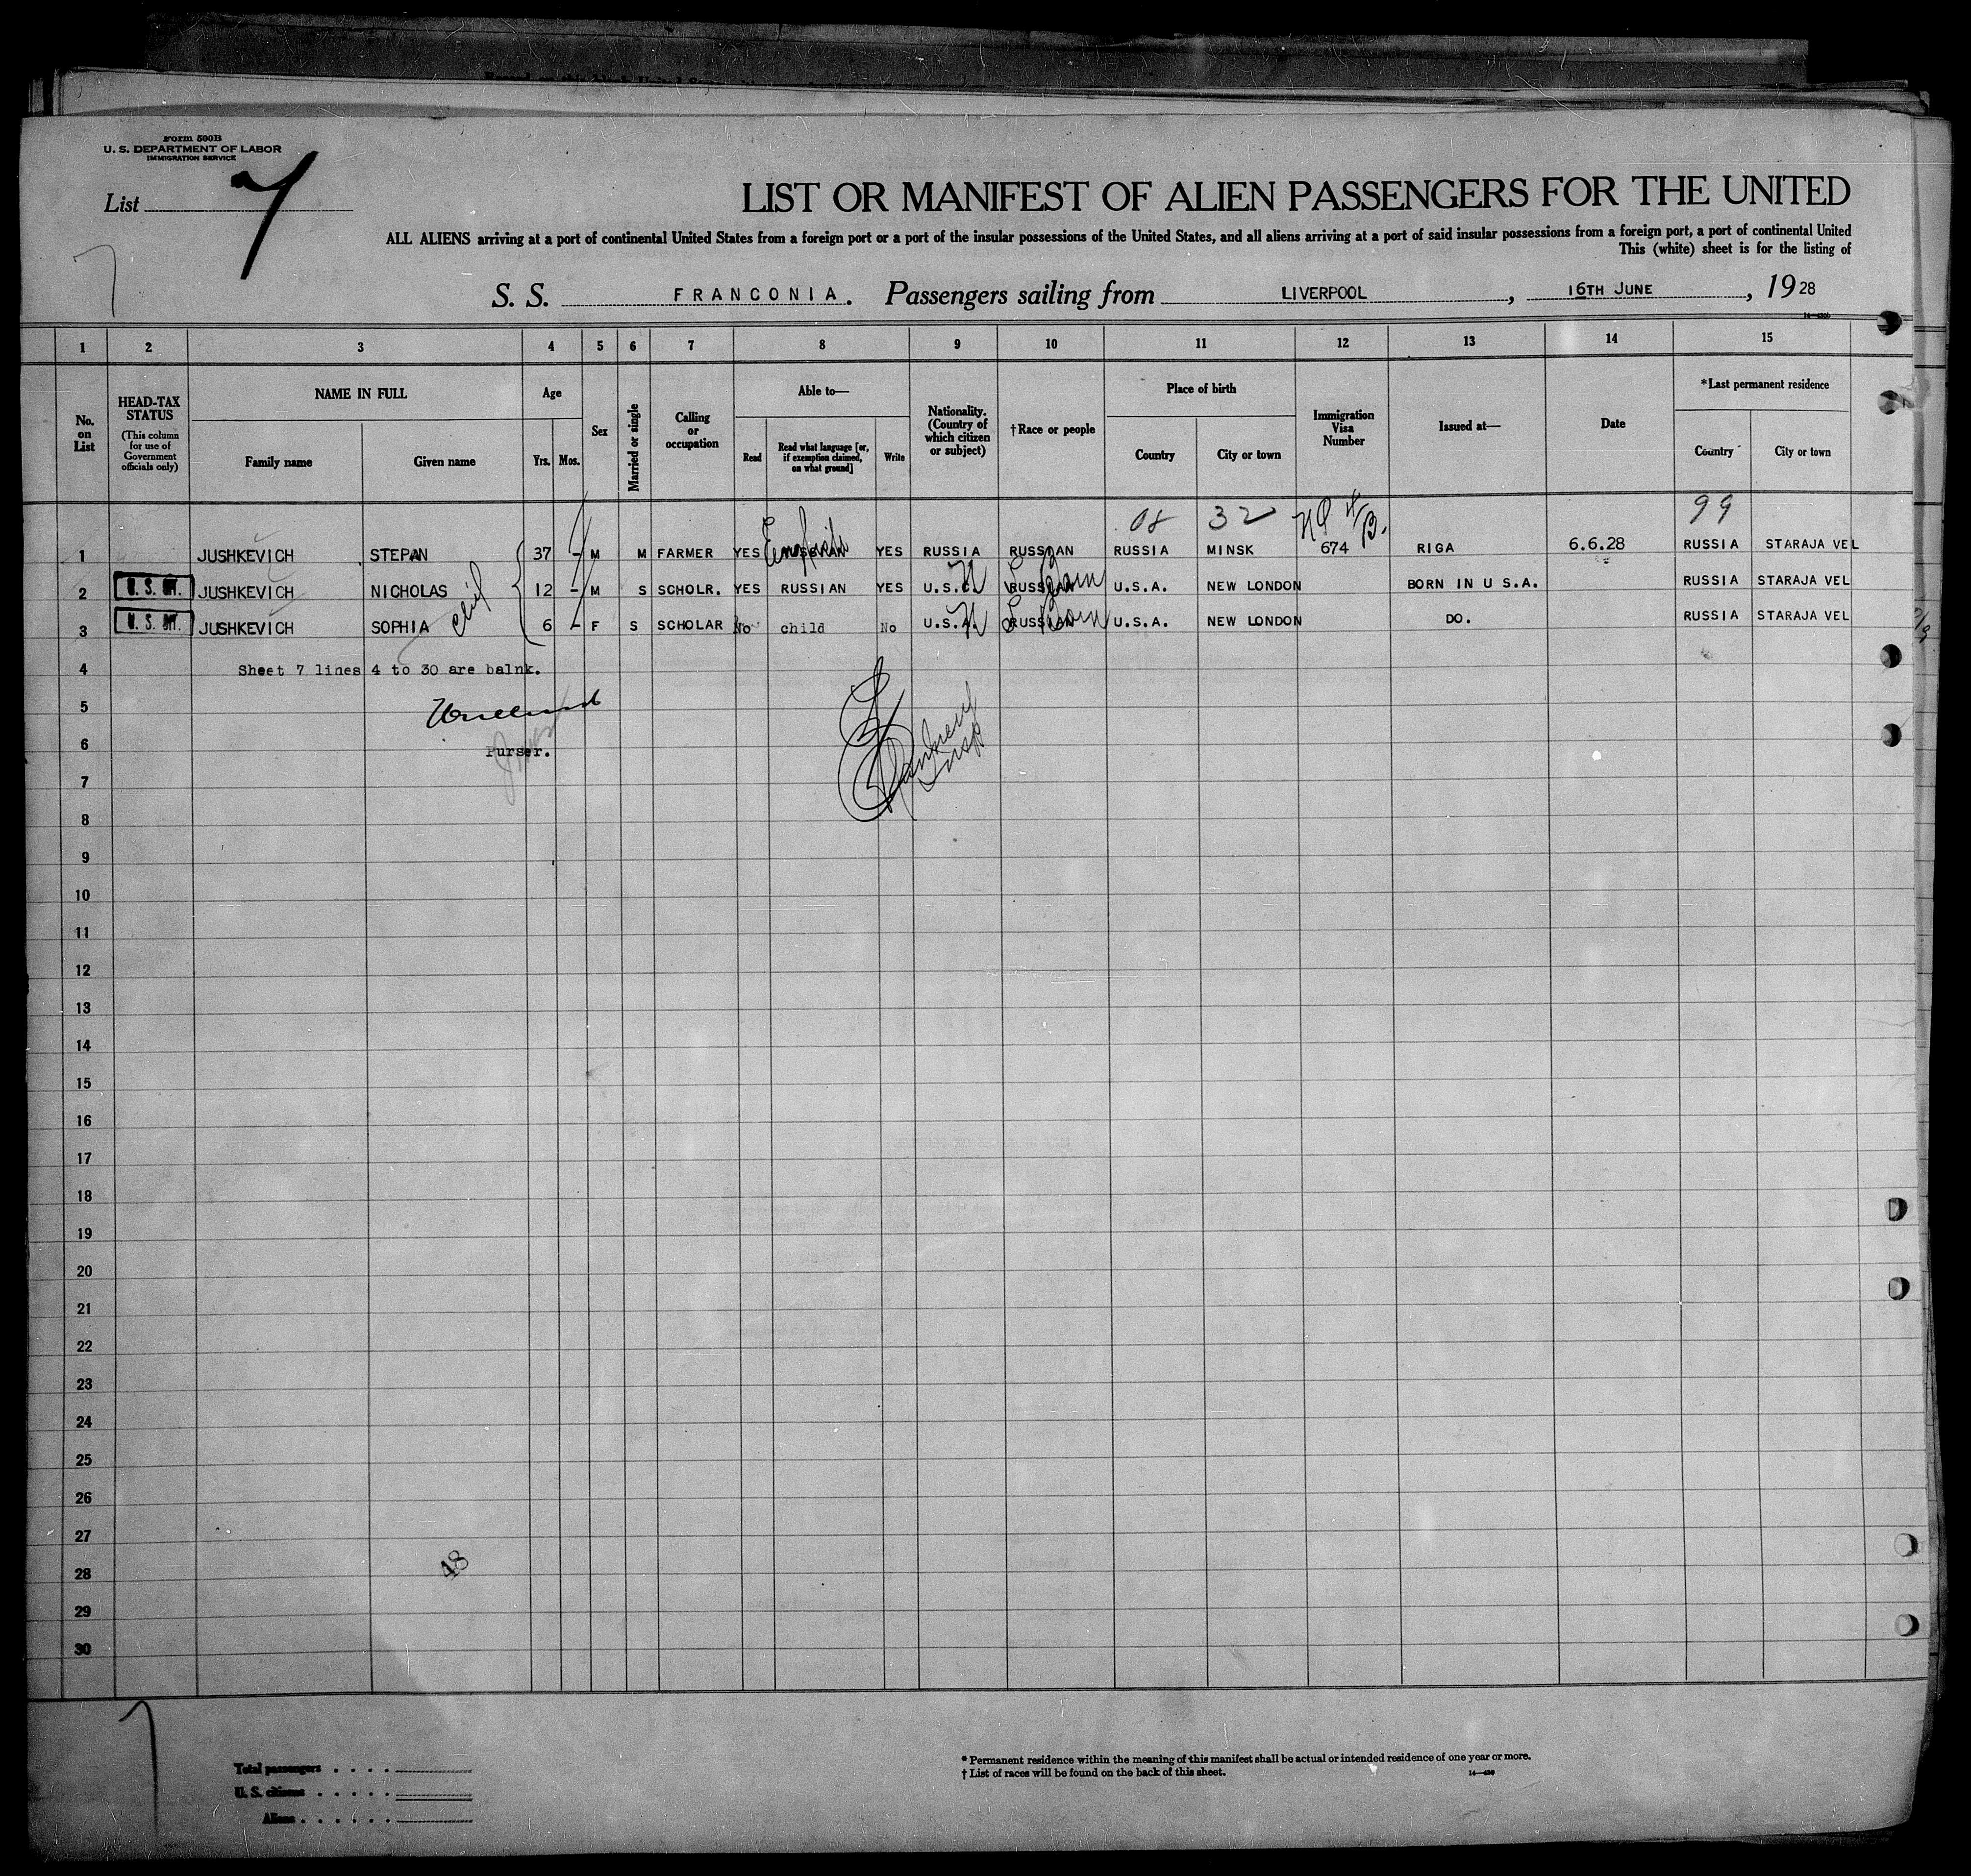 Form 500B
U. S. DEPARTMENT OF LABOR
IMMIGRATION SERVICE
List 7
LIST OR MANIFEST OF ALIEN PASSENGERS FOR THE UNITED
ALL ALIENS arriving at a port of continental United States from a foreign port or a port of the insular possessions of the United States, and all aliens arriving at a port of said insular possessions from a foreign port, a port of continental United
This (white) sheet is for the listing of
7
S. S. FRANCONIA. Passengers sailing from LIVERPOOL, 16TH JUNE, 1928
1 2 3 4 5 6 7 8 9 10 11 12 13 14 15
No. on List
HEAD-TAX STATUS
(This column for use of Government officials only)
NAME IN FULL
Family name Given name
Age
Yrs. Mos.
Sex
Married or single
Calling or occupation
Able to—
Read
Read what language [or, if exemption claimed, on what ground]
Write
Nationality. (Country of which citizen or subject)
†Race or people
Place of birth
Country City or town
Immigration Visa Number
Issued at—
Date
*Last permanent residence
Country City or town
08 32 99
English
1 JUSHKEVICH STEPAN 37 - M M FARMER YES RUSSIAN YES RUSSIA RUSSIAN RUSSIA MINSK 674 RIGA 6.6.28 RUSSIA STARAJA VEL
2 JUSHKEVICH NICHOLAS 12 - M S SCHOLR. YES RUSSIAN YES U.S.A. RUSSIAN U.S.A. NEW LONDON BORN IN U S.A. RUSSIA STARAJA VEL
3 JUSHKEVICH SOPHIA 6 - F S SCHOLAR No child No U.S.A. RUSSIAN U.S.A. NEW LONDON DO. RUSSIA STARAJA VEL
4 Sheet 7 lines 4 to 30 are balnk.
5
6 Purser.
7
8
9
10
11
12
13
14
15
16
17
18
19
20
21
22
23
24
25
26
27
28 48
29
30
Total passengers
U. S. citizens
Aliens
* Permanent residence within the meaning of this manifest shall be actual or intended residence of one year or more.
† List of races will be found on the back of this sheet.